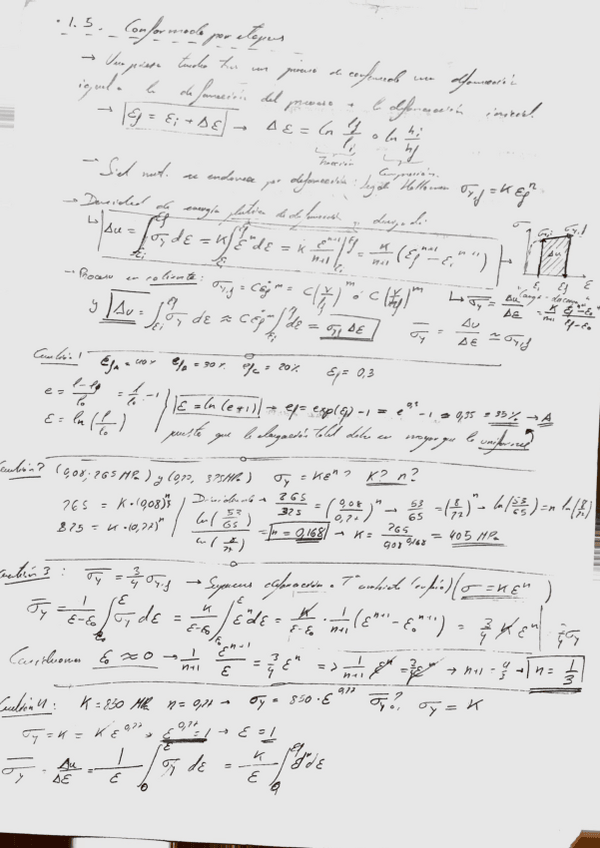 · 1.5. Conformado por etapas
→ Una pieza tendrá tras un proceso de conformado una deformación
igual a la deformación del proceso + la deformación inicial.
→ |εf = εi + Δε| → Δε = ln lf/li o ln hi/hf
Tracción Compresión
- Si el mat. se endurece por deformación: según Hollomon σy,f = K εf^n
→ Densidad de energía plástica de deformación
↳ |Δu = ∫εi^εf σy dε = K∫εi^εf ε^n dε = K ε^(n+1)/(n+1) |εi^εf = K/(n+1) (εf^(n+1) - εi^(n+1))
→ Proceso en caliente: σy,f = C ε̇^m = C(v/lf)^m o C(v/hf)^m
↳ σ̄y = Δu/Δε
y |Δu| = ∫εi^εf σy dε ≈ C ε̇^m ∫εi^εf dε = σy,f Δε σ̄y = Δu/Δε ≃ σy,f
Cuestión 1 efA = 40% efB = 30% efC = 20% εf = 0,3
e = (l-l0)/l0 = l/l0 - 1
ε = ln(l/l0)
|ε = ln(e+1)| → ef = exp(εf) - 1 = e^0,3 - 1 = 0,35 = 35% → A
puesto que la elongación total debe ser mayor que la uniforme
Cuestión 2 (0,08, 265 MPa) y (0,22, 325 MPa) σy = Kε^n? K? n?
265 = K·(0,08)^n
325 = K·(0,22)^n
Dividiendo → 265/325 = (0,08/0,22)^n → 53/65 = (8/22)^n → ln(53/65) = n ln(8/22)
ln(53/65)/ln(8/22) = |n = 0,168| → K = 265/0,08^0,168 = 405 MPa
Cuestión 3: σ̄y = 3/4 σy,f → Suponemos deformación a Tª ambiente (en frío) (σ = Kε^n)
σ̄y = 1/(ε-ε0) ∫ε0^ε σy dε = K/(ε-ε0) ∫ε0^ε ε^n dε = K/(ε-ε0) · 1/(n+1) (ε^(n+1) - ε0^(n+1)) = 3/4 K ε^n
ε0 ≈ 0 → 1/(n+1) ε^(n+1)/ε = 3/4 ε^n => 1/(n+1) ε^n = 3/4 ε^n → n+1 = 4/3 → |n = 1/3|
Cuestión 4: K = 850 MPa n = 0,22 → σy = 850·ε^0,22 σ̄y? σy = K
σy = K = K ε^0,22 → ε^0,22 = 1 → ε = 1
σ̄y = Δu/Δε = 1/ε ∫0^ε σy dε = K/ε ∫0^εf ε^n dε